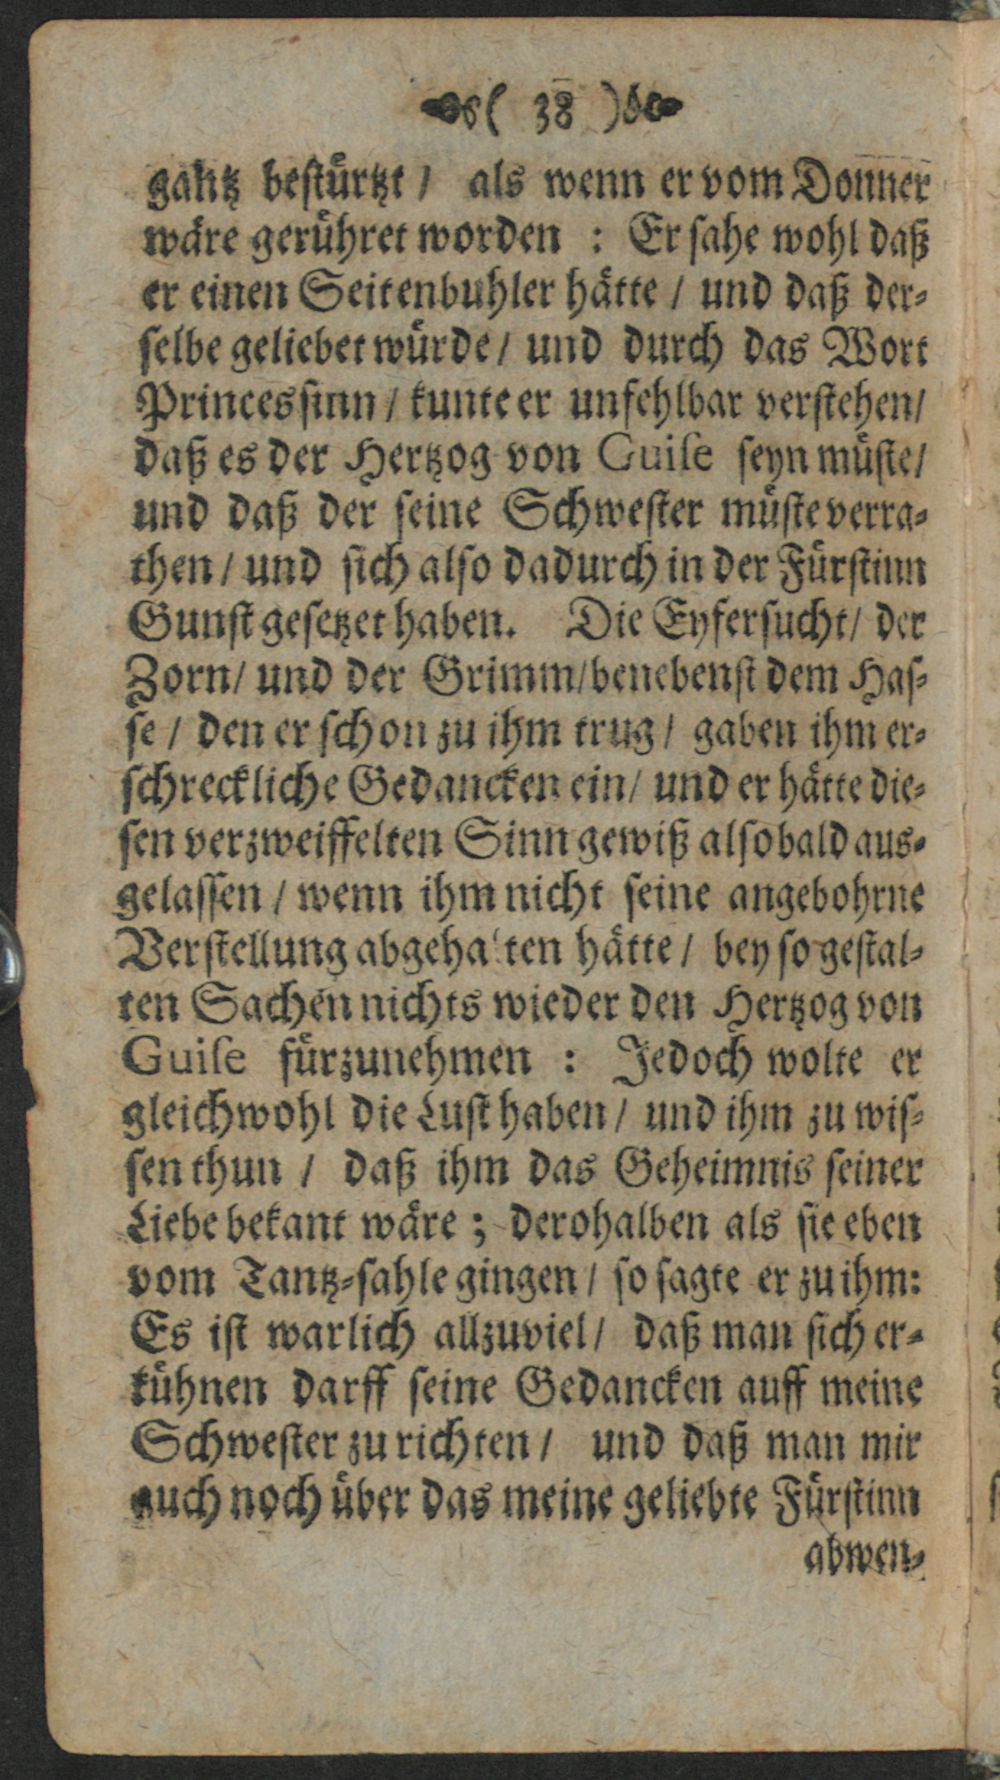 ( 38 )
gantz bestürtzt / als wenn er vom Donner
wäre gerühret worden : Er sahe wohl daß
er einen Seitenbuhler hätte / und daß der-
selbe geliebet würde / und durch das Wort
Princessinn / kunte er unfehlbar verstehen /
daß es der Hertzog von Guise seyn müste /
und daß der seine Schwester müste verra-
then / und sich also dadurch in der Fürstinn
Gunst gesetzet haben. Die Eyfersucht / der
Zorn / und der Grimm / benebenst dem Has-
se / den er schon zu ihm trug / gaben ihm er-
schreckliche Gedancken ein / und er hätte die-
sen verzweiffelten Sinn gewiß alsobald aus-
gelassen / wenn ihm nicht seine angebohrne
Verstellung abgehalten hätte / bey so gestal-
ten Sachen nichts wieder den Hertzog von
Guise fürzunehmen : Jedoch wolte er
gleichwohl die Lust haben / und ihm zu wis-
sen thun / daß ihm das Geheimnis seiner
Liebe bekant wäre ; derohalben als sie eben
vom Tantz-sahle gingen / so sagte er zu ihm:
Es ist warlich allzuviel / daß man sich er-
kühnen darff seine Gedancken auff meine
Schwester zu richten / und daß man mir
auch noch über das meine geliebte Fürstinn
abwen-